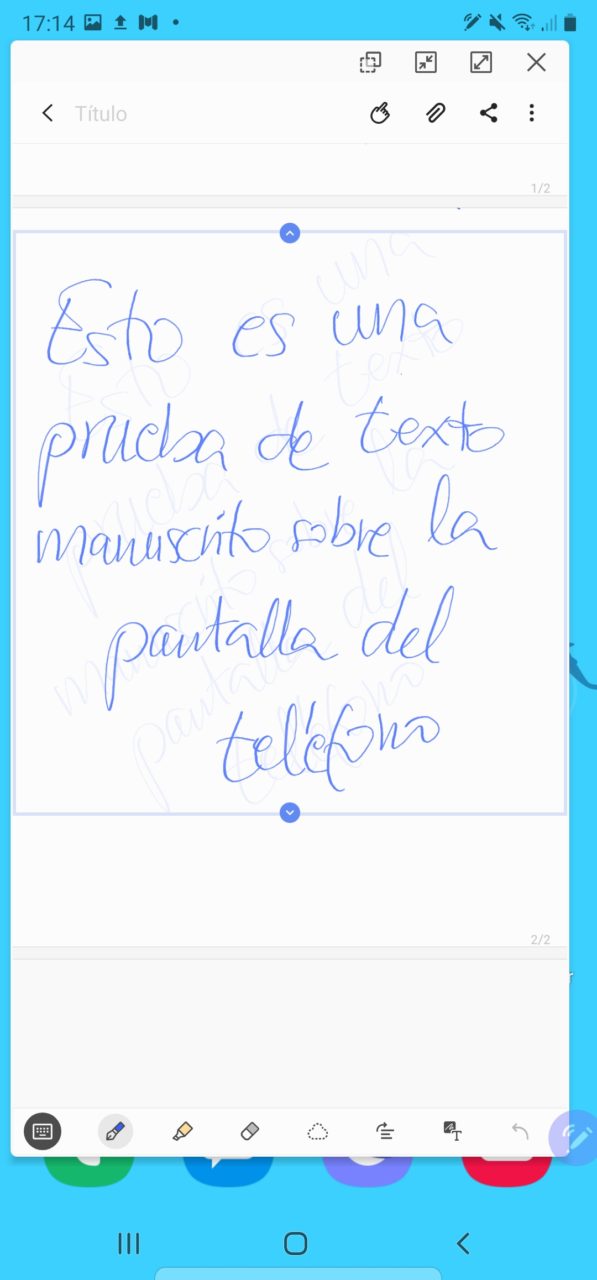 17:14
Título
1/2
Esto es una
prueba de texto
manuscrito sobre la
pantalla del
teléfono
2/2